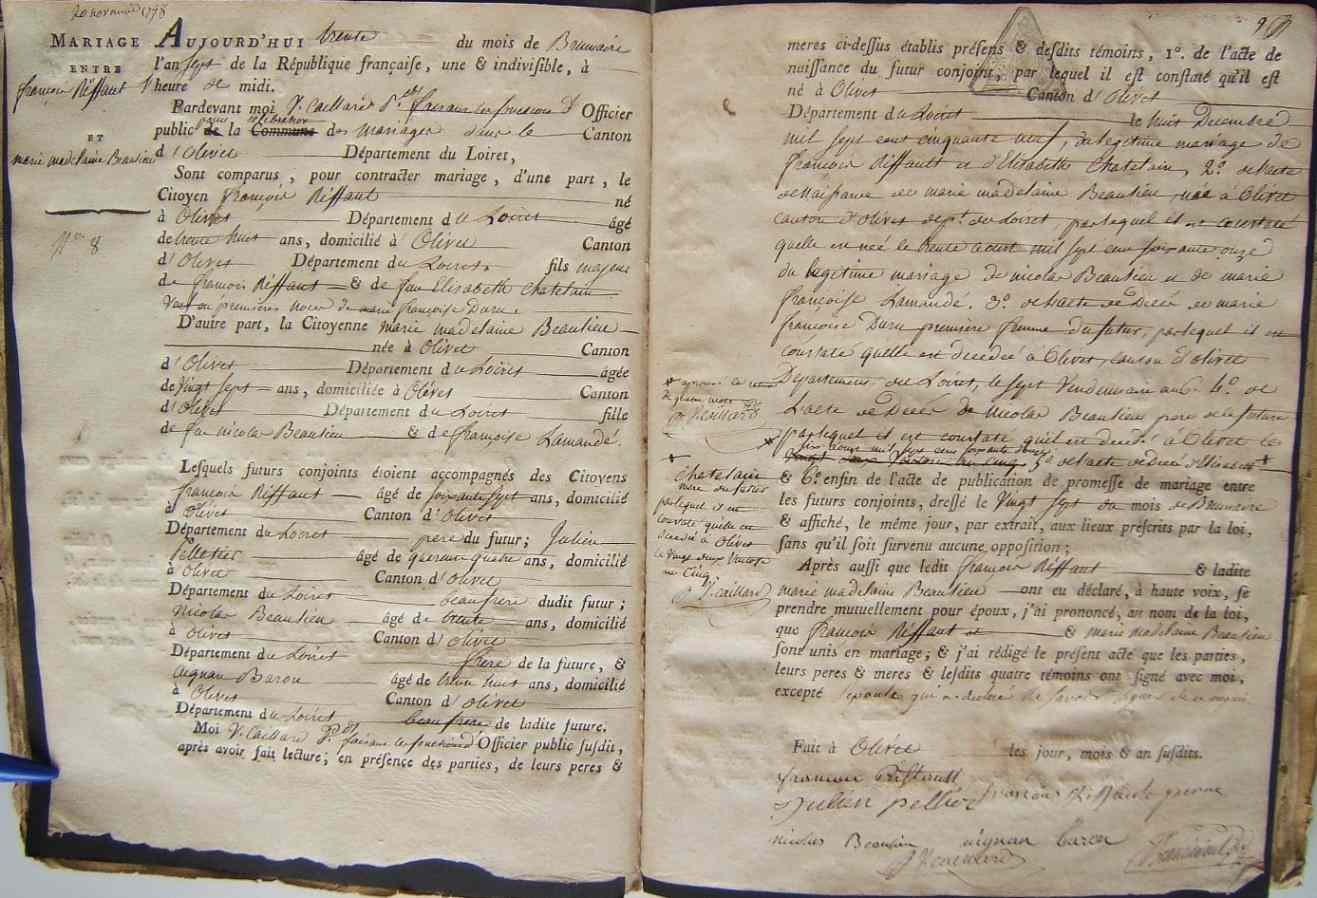 20 novembre 1798
MARIAGE
ENTRE
françois Riffault
ET
marie madelaine Beaulieu
N.° 8
AUJOURD'HUI trente du mois de Brumaire
l'an sept de la République française, une & indivisible, à
l'heure de midi.
Pardevant moi V. Caillard faisant les fonctions d' Officier
public de la Commune pour celebration des mariages dans le Canton
d'Olivet Département du Loiret,
Sont comparus, pour contracter mariage, d'une part, le
Citoyen françois Riffault né
à Olivet Département du Loiret âgé
de trente huit ans, domicilié à Olivet Canton
d'Olivet Département du Loiret fils majeur
de françois Riffault & de feu Elisabeth Chatelain
Veuf en premieres noces de marie françoise Duru
D'autre part, la Citoyenne marie madelaine Beaulieu
née à Olivet Canton
d'Olivet Département du Loiret âgée
de Vingt sept ans, domiciliée à Olivet Canton
d'Olivet Département du Loiret fille
de feu nicolas Beaulieu & de françoise Lamandé.
Lesquels futurs conjoints étoient accompagnés des Citoyens
françois Riffault âgé de soixante sept ans, domicilié
à Olivet Canton d'Olivet
Département du Loiret pere du futur; Julien
Pelletier âgé de quarante quatre ans, domicilié
à Olivet Canton d'Olivet
Département du Loiret beaufrere dudit futur;
Nicolas Beaulieu âgé de trente ans, domicilié
à Olivet Canton d'Olivet
Département du Loiret frere de la future, &
Aignan Baron âgé de trente huit ans, domicilié
à Olivet Canton d'Olivet
Département du Loiret beaufrere de ladite future.
Moi V. Caillard faisant les fonctions d'Officier public susdit,
après avoir fait lecture, en présence des parties, de leurs peres &
meres ci-dessus établis présens & desdits témoins, 1°. de l'acte de
naissance du futur conjoint, par lequel il est constaté qu'il est
né à Olivet Canton d'Olivet
Département du Loiret le huit Decembre
mil sept cent cinquante neuf, du legitime mariage de
françois Riffault et d'Elisabeth Chatelain, 2°. de l'acte
de Naissance de marie madelaine Beaulieu née à Olivet
canton d'Olivet dep.t du Loiret, par lequel il est constaté
quelle est née le trente aoust mil sept cent soixante onze
du legitime mariage de nicolas Beaulieu et de marie
françoise Lamandé. 3°. de l'acte de Decès de marie
françoise Duru premiere femme du futur, par lequel il est
constaté quelle est decedée à Olivet, canton d'olivet
Departement du Loiret, le sept Vendemiaire an 6. 4°. de
L'acte de Decès de Nicolas Beaulieu pere de la future
par lequel il est constaté quil est decedé à Olivet le
six aoust mil sept cent soixante douze
5°. de l'acte de decès d'Elisabeth
chatelain
mere du futur
par lequel il est
constaté quelle est
decedée à Olivet
le Vingt deux Ventose
an Cinq
V. Caillard
& 6°. enfin de l'acte de publication de promesse de mariage entre
les futurs conjoints, dressé le Vingt sept du mois de Brumaire
& affiché, le même jour, par extrait, aux lieux préscrits par la loi,
sans qu'il soit survenu aucune opposition;
Après aussi que ledit françois Riffault & ladite
marie madelaine Beaulieu ont eu déclaré, à haute voix, se
prendre mutuellement pour époux, j'ai prononcé, au nom de la loi,
que françois Riffault & marie madelaine Beaulieu
sont unis en mariage; & j'ai rédigé le présent acte que les parties,
leurs peres & meres & lesdits quatre témoins ont signé avec moi,
excepté l'epouse qui a declaré ne savoir signer
Fait à Olivet les jour, mois & an susdits.
françois Riffault
Julien pelletier françois Riffault
nicolas Beaulieu aignan baron
V. Caillard